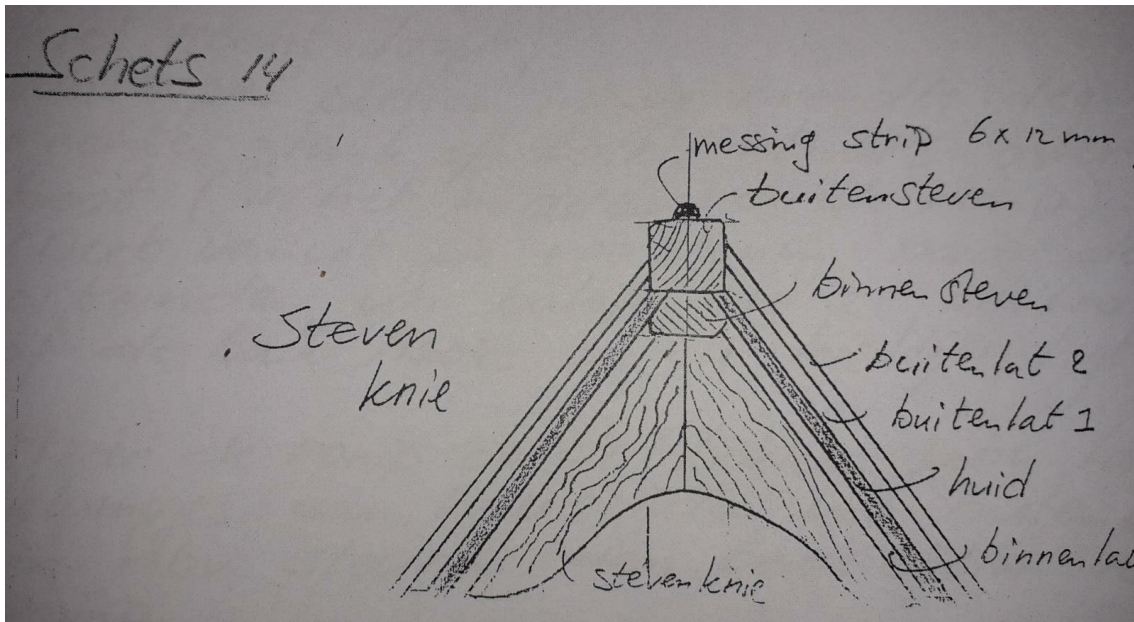 Schets 14
messing strip 6 x 12 mm
buitensteven
binnensteven
Steven
knie
buitenlat 2
buitenlat 1
huid
binnenlat
stevenknie